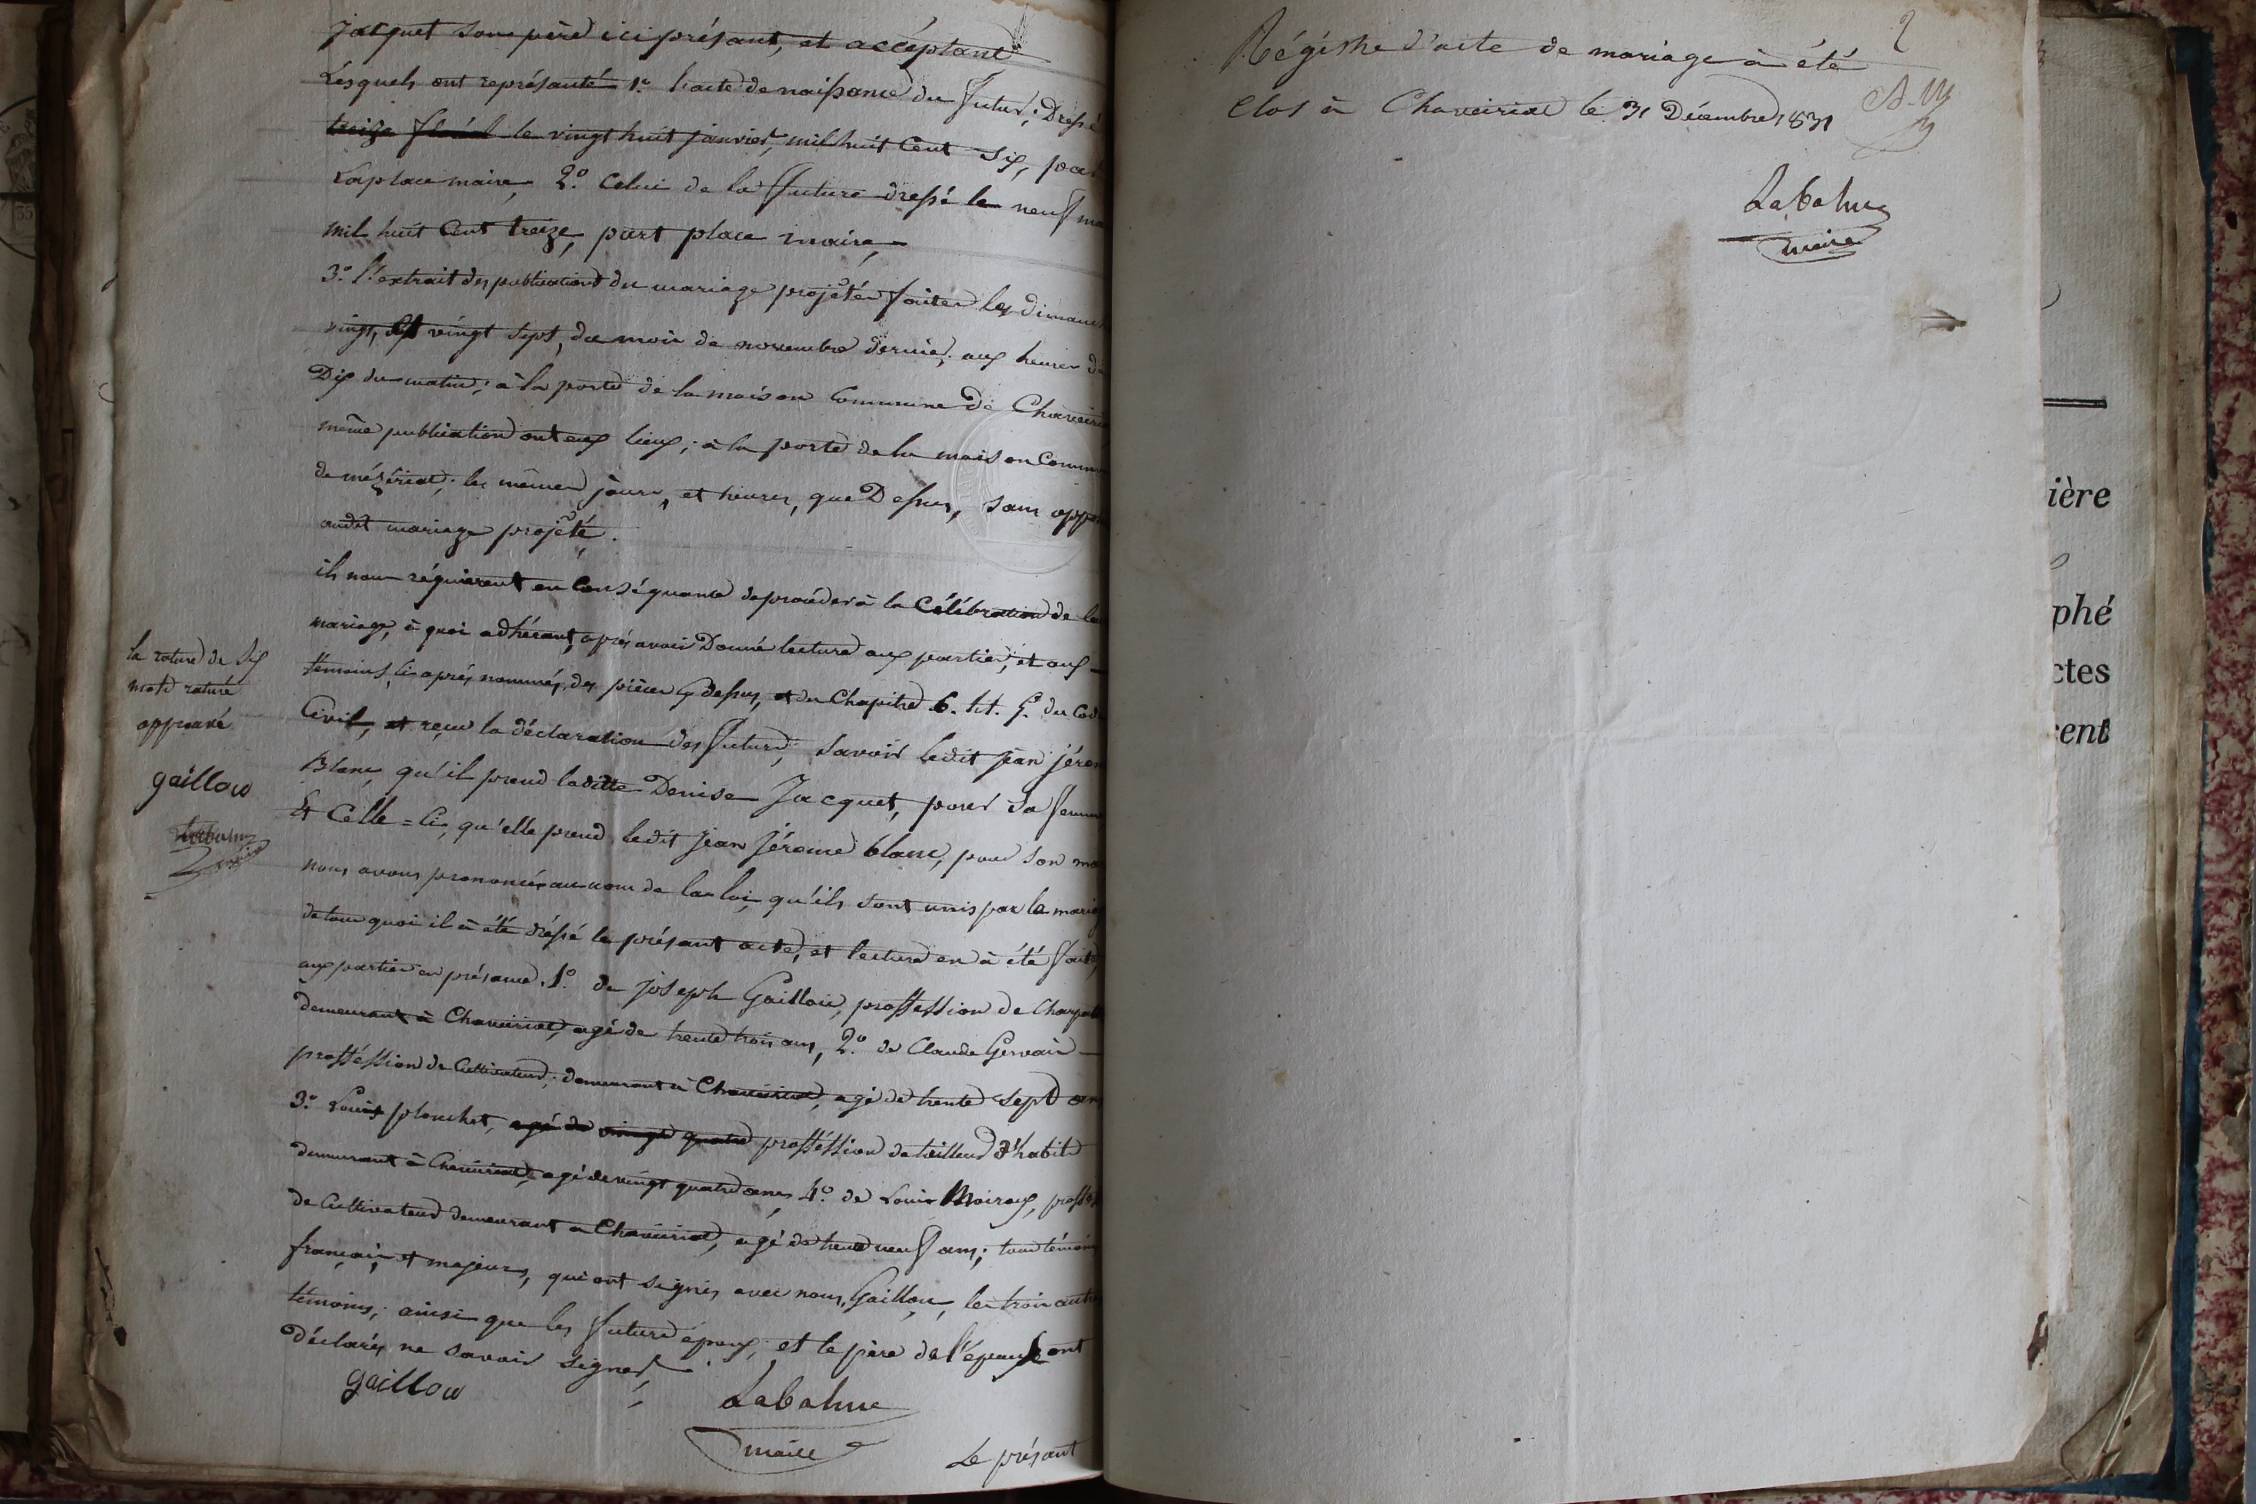 Jacquet son père ici présant, et accéptant
Lésquels ont représanté 1.° l'acte de naissance du futur; Dressé
treize floréal le vingt huit janvier, mil huit Cent Six, par
Laplace maire, 2.° Celui de la future dressé le neuf
mil huit Cent treize, part place maire,
3.° l'extrait des publications du mariage projetér faiter les dimanch
vingt, et vingt sept, du mois de novembre dernier, aux heures d
Dix du matin; à la porte de la maison Commune De Chaveiria
même publication ont eux lieux; à la porte de la maison Commu
de mézériat; les mêmes jours, et heures, que Dessus, sans oppo
audit mariage projeté.
ils nous réquierent en Conséquance de procéder à la Célébration de la
mariage, à quoi adhérant, aprés avoir Donné lecture aux parties; et aux
témoins, ci aprés nommés, des pièces ci dessus, et du Chapitre 6. tit. 5. du Cod
Civil, et reçu la déclaration des futurs, savoir ledit jean jérom
Blanc, qu'il prend laditte Denise Jacquet, pour Sa femme
Et Célle=ci, qu'elle prend ledit jean jérome blanc, pour son ma
nous avons prononcés au nom de la loi, qu'ils sont unis par le mariag
de tout quoi il à été dréssé le présant acte, et lecture en à été fait
aux parties en présance. 1.° de joseph Gaillou, proffession de Charp
demeurant à Chaveiriat, agé de trente trois ans, 2.° de Claude Gervais
proffession de Cultivateur, demeurant à Chaveiriat, agé de trente sept ans
3.° Louis planchet, agé de vingt quatre proffession de tailleur d'habits
demeurant à Chaveiriat, agé de vingt quatre anes 4.° de Louis Moiroux, proffes
de Cultivateur demeurant à Chaveiriat, agé de trente neuf ans; tous témoins
français et majeurs, qui ont signés avec nous, Gaillou, les trois autr
témoins, ainsi que les futurs époux, et le père de l'épouse ont
déclarés ne savoir signer
gaillou
Labalme
maire
Le présant
la rature de Six
mots raturé
approuvé
gaillou
Labalme
maire
2
Régistre d'acte de mariage à été
Clos à Chaveiriat le 31 Décembre 1831
Labalme
maire
ière
phé
ctes
cent